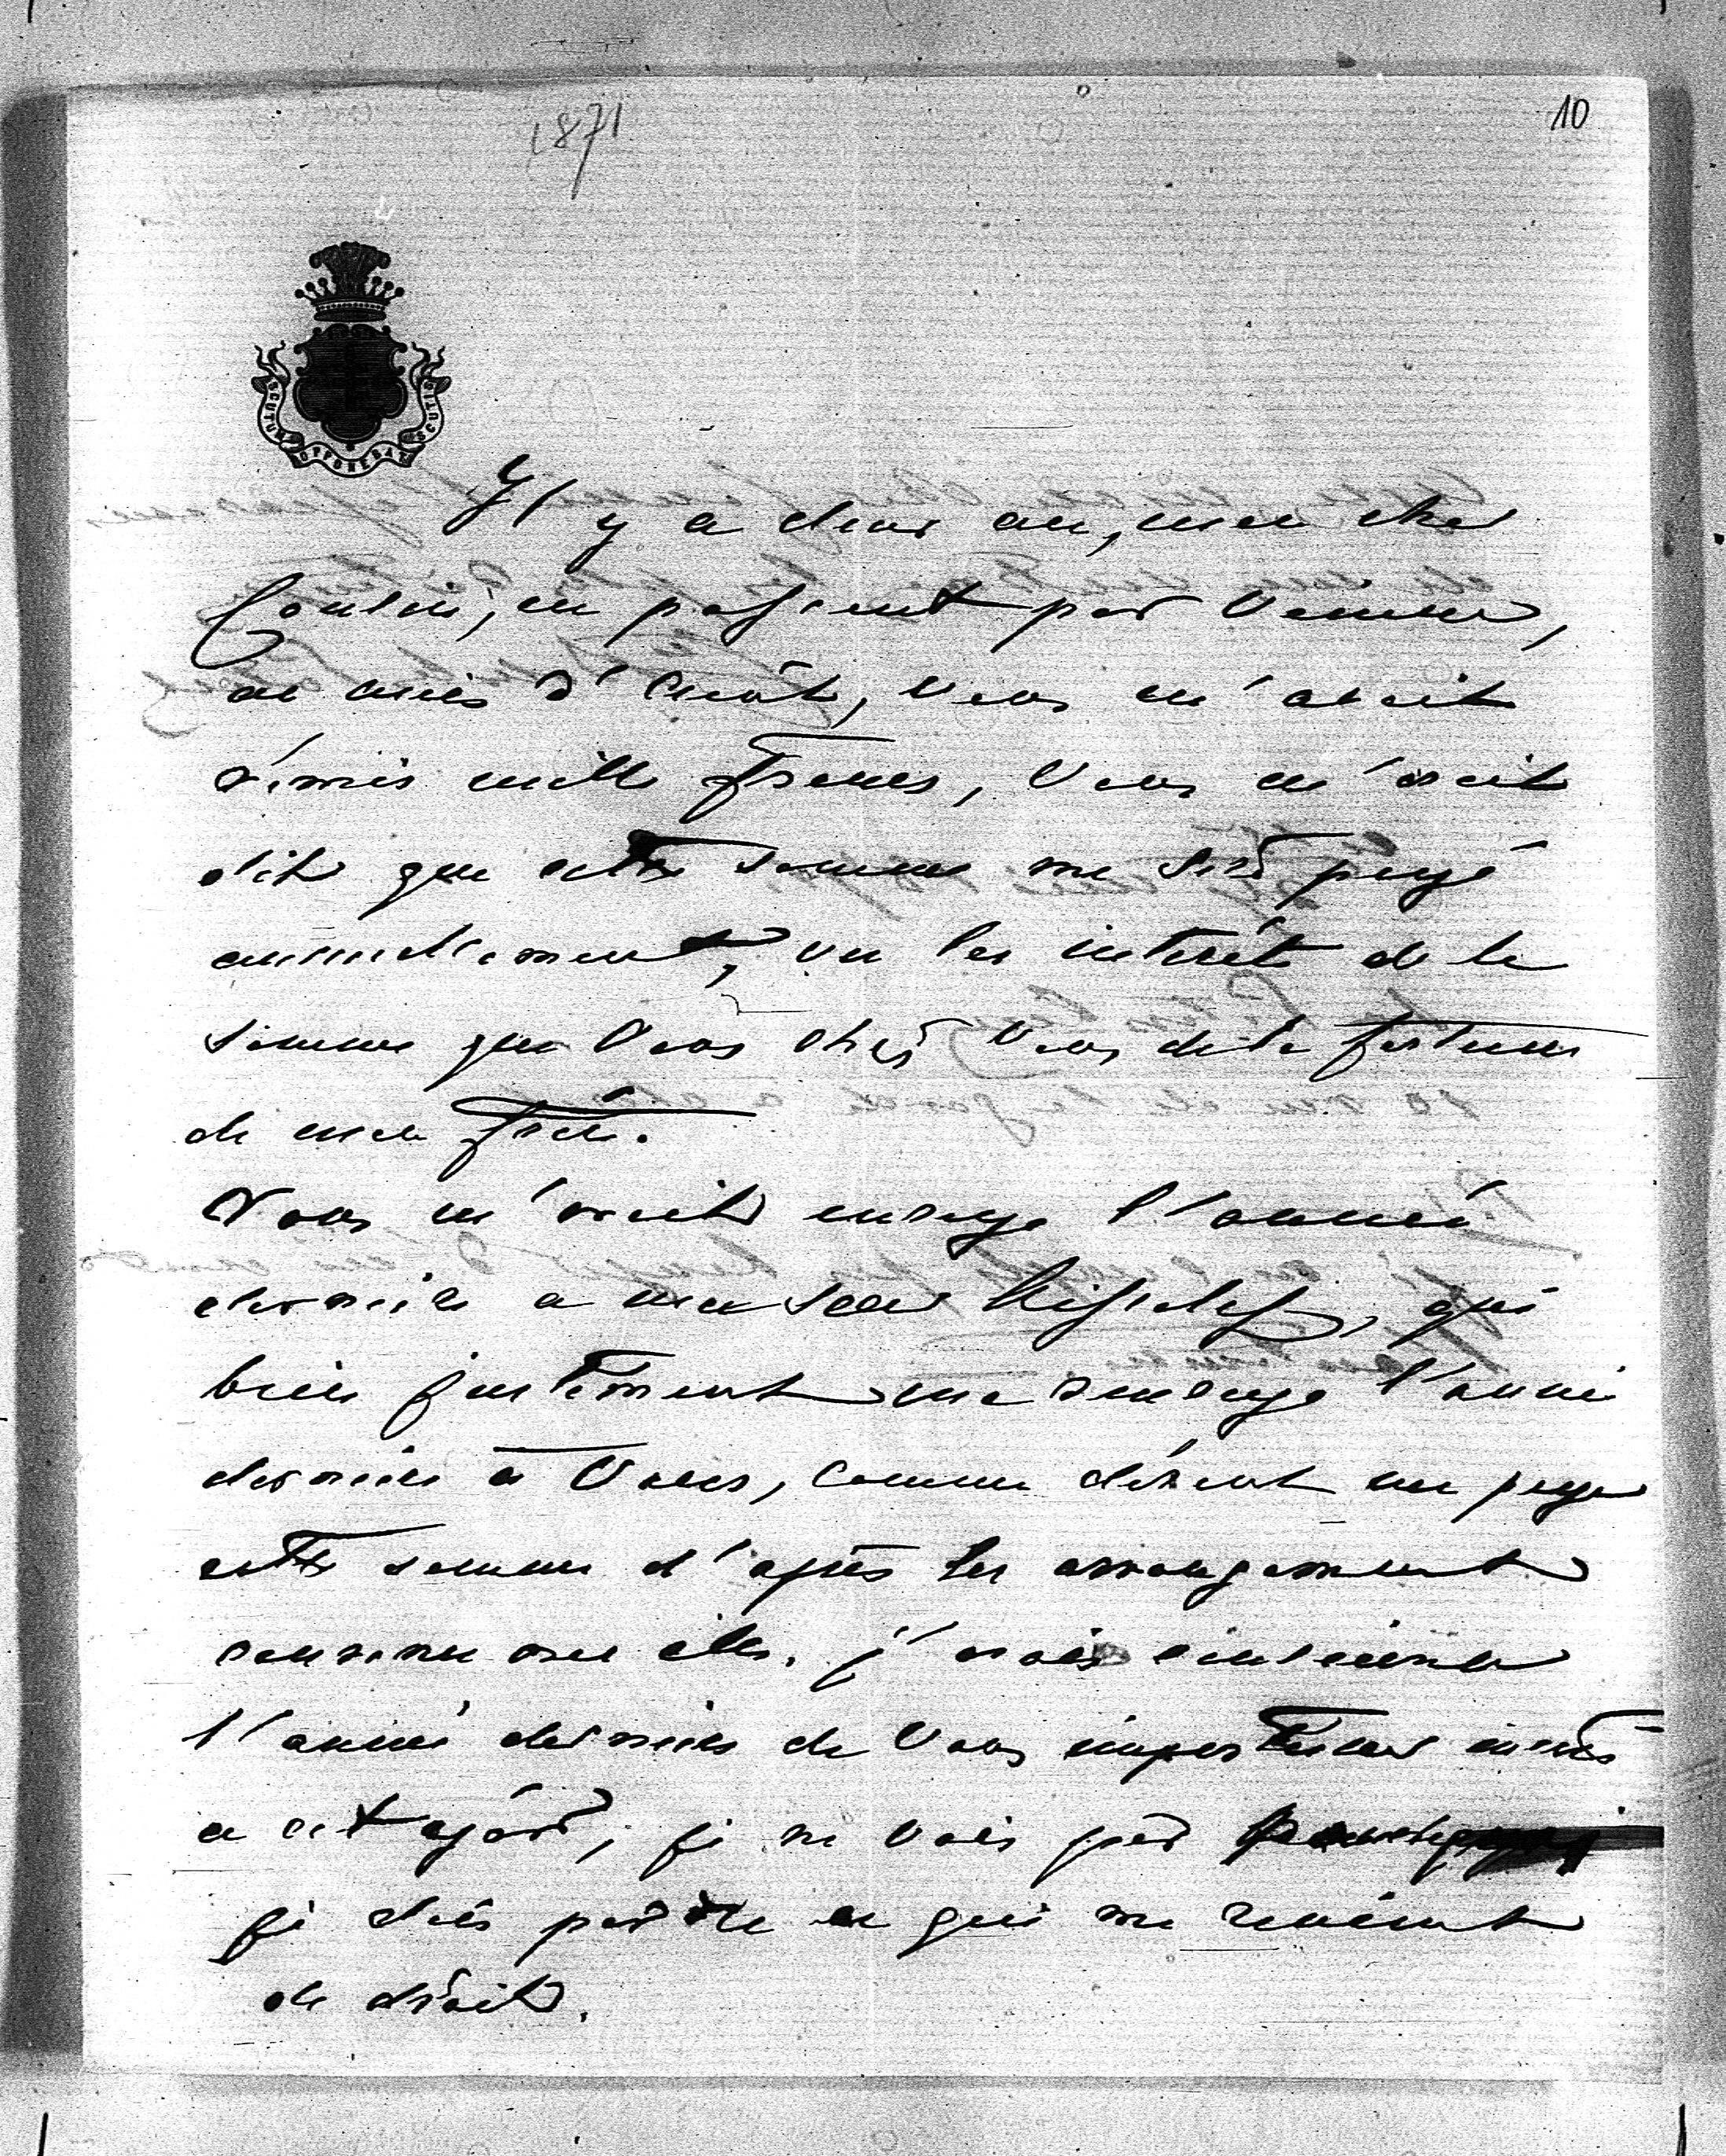 1871
10
SCUTUM OPPONEBAT SCUTIS
Il y a deux an, mon cher
Cousin, en passant par Vienne,
au mois d'Août, Vous m'avait
rémis mille francs, Vous m'avait
dit que cette somme me sera payé
annuellement, vu les intérêts de la
somme que Vous chez Vous de la fortune
de mon frère.
Vous m'avait envoyé l'année
dernière a ma soeur qui
bien justement me l'année
dernière à Vous, comme dévant me payer
cette somme d'après les arrangements
convenu avec elle. j'avais
l'année dernière de Vous importuner
a cet égard, je ne vois pas
je dois perdre ce qui me revient
de droit.